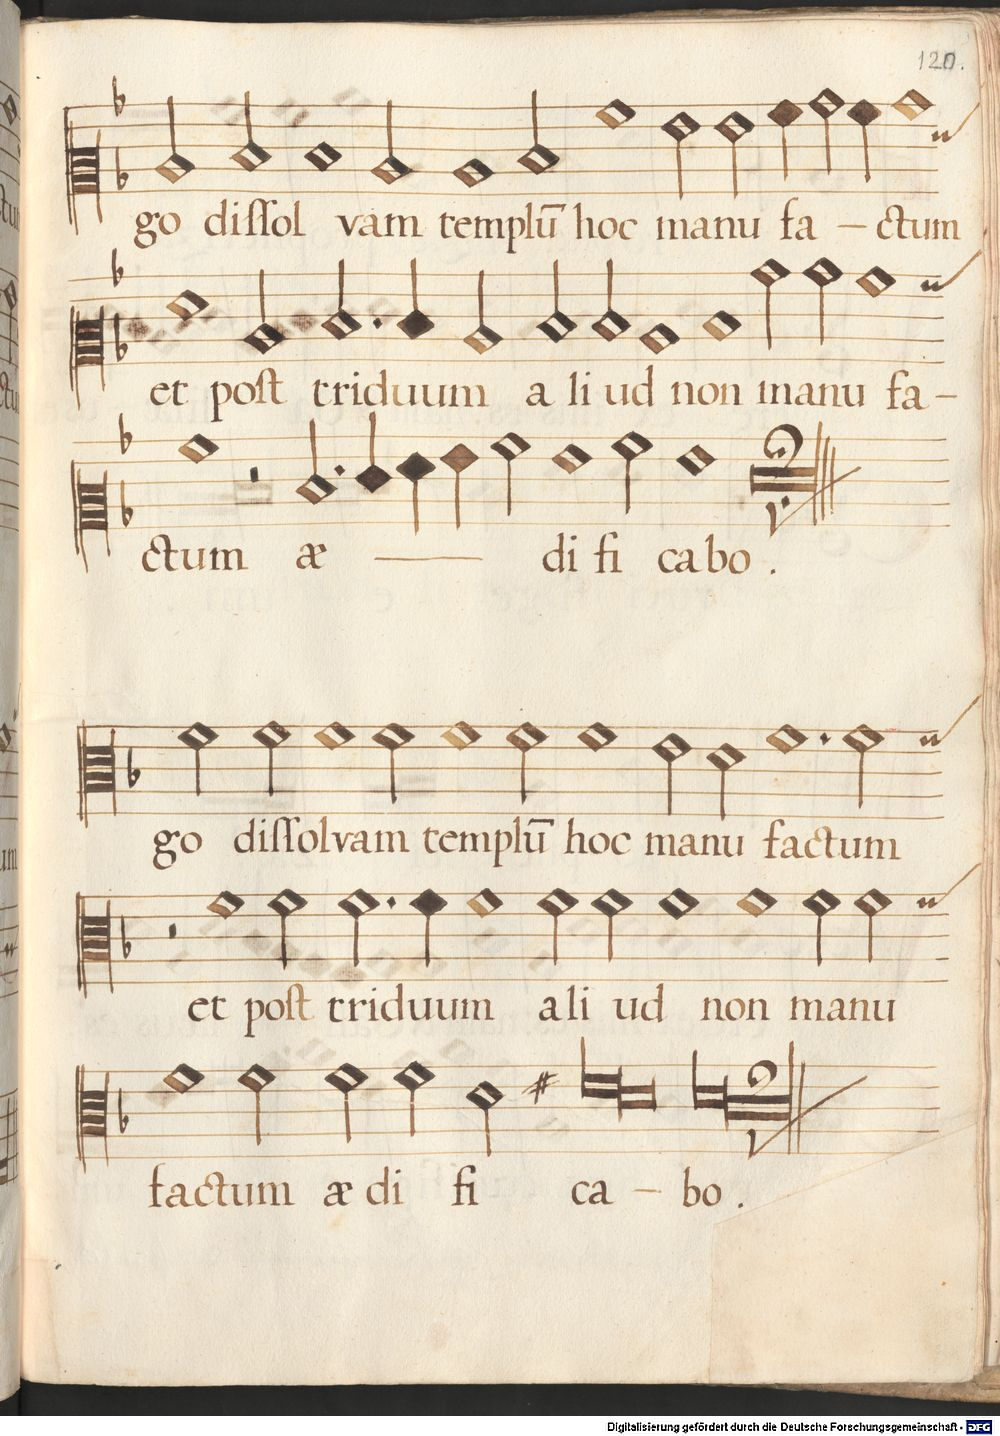 120.
go dissol vam templū hoc manu fa – ctum
et post triduum a li ud non manu fa –
ctum æ — di fi ca bo .
go dissolvam templū hoc manu factum
et post triduum a li ud non manu
factum æ di fi ca – bo .
Digitalisierung gefördert durch die Deutsche Forschungsgemeinschaft - DFG